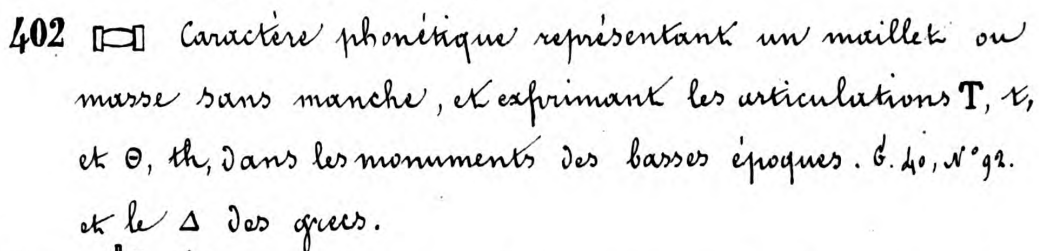 402 Caractère phonétique représentant un maillet ou
masse sans manche, et exprimant les articulations T, t,
et Θ, th, dans les monuments des basses époques. G. 40, N° 92.
et le Δ des grecs.